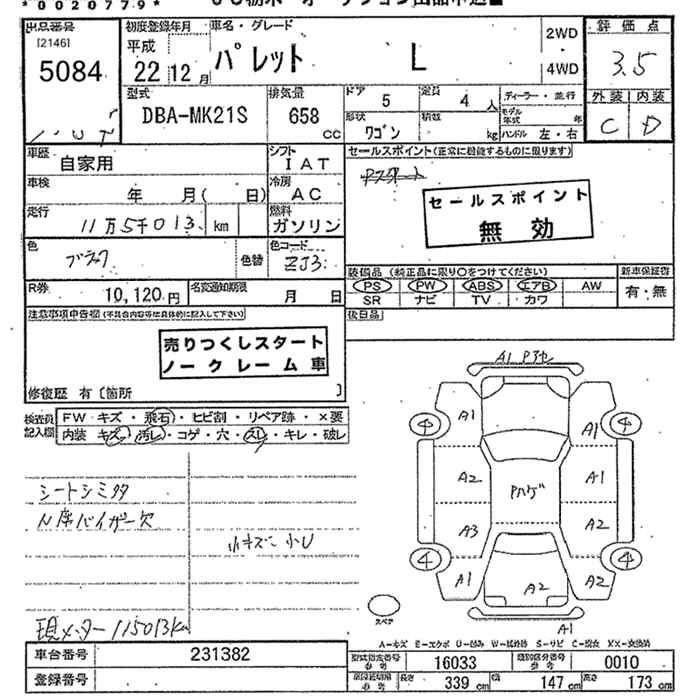 *0020779*
出品番号
[2146]
5084
初度登録年月
平成
22 12月
車名・グレード
パレット L
2WD
・
4WD
評価点
3.5
外装 内装
C D
型式
DBA-MK21S
排気量
658
cc
ドア
5
定員
4人
ディーラー・並行
形状
ワゴン
積載
kg
モデル年式
年
ハンドル 左・右
車歴
自家用
シフト
IAT
セールスポイント(正常に機能するものに限ります)
セールスポイント
無効
車検
年 月( 日)
冷房
AC
走行
11万5千013 km
燃料
ガソリン
色
ブラック
色替
色コード
ZJ3
装備品(純正品に限り○をつけてください)
PS PW ABS エアB AW
SR ナビ TV カワ
新車保証書
有・無
R券
10,120円
名変通知期限
月 日
後日品
注意事項申告欄(不具合内容等は具体的に記入して下さい)
売りつくしスタート
ノークレーム車
修復歴 有〔箇所 〕
検査員
記入欄
FW キズ・飛石・ヒビ割・リペア跡・×要
内装 キズ・汚レ・コゲ・穴・スレ・キレ・破レ
シートシミ多
N席バイザー欠
小キズ・小U
現メーター 115013km
A1
A1
A1
A2
A1
Pハゲ
A3
A2
A1
A2
A2
A1
4
4
4
4
スペア
A-キズ E-エクボ U-凹み W-補修跡 S-サビ C-腐食 XX-交換済
車台番号
231382
登録番号
型式指定番号
参考
16033
類別区分番号
参考
0010
参考
長さ
339 cm
幅
147 cm
高さ
173 cm